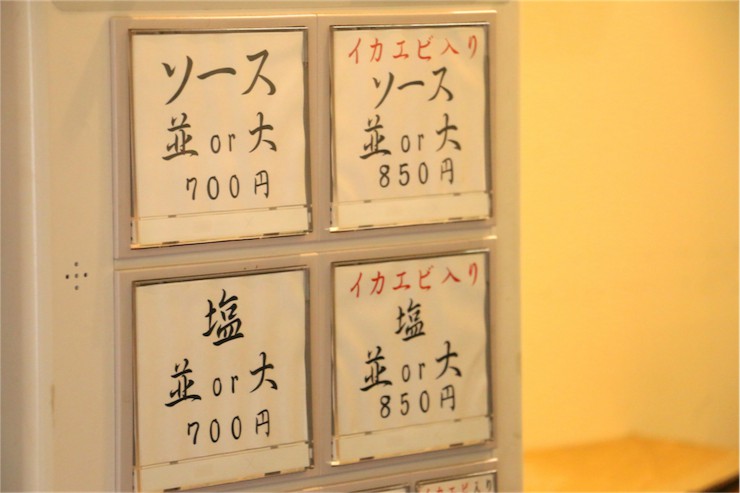 ソース
並 or 大
700円
イカエビ入り
ソース
並 or 大
850円
塩
並 or 大
700円
イカエビ入り
塩
並 or 大
850円
イカエビ入り